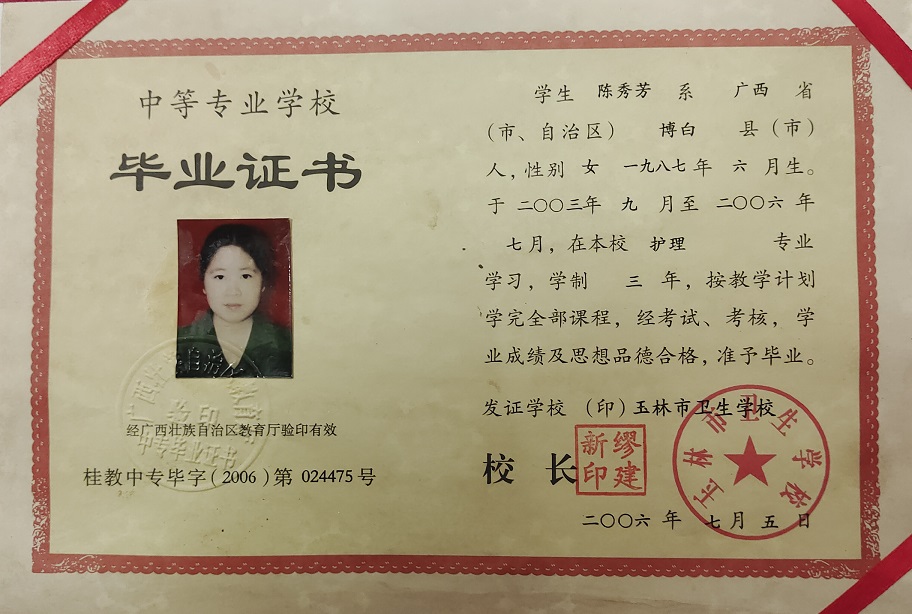 中等专业学校
毕业证书
经广西壮族自治区教育厅验印有效
桂教中专毕字(2006)第 024475 号
学生 陈秀芳 系 广西 省
(市、自治区) 博白 县(市)
人,性别 女 一九八七年 六 月生。
于 二〇〇三年 九 月至 二〇〇六 年
七月,在本校 护理 专业
学习,学制 三 年,按教学计划
学完全部课程,经考试、考核,学
业成绩及思想品德合格,准予毕业。
发证学校 (印)玉林市卫生学校
校 长
缪建新印
玉林市卫生学校
二〇〇六 年 七月 五 日